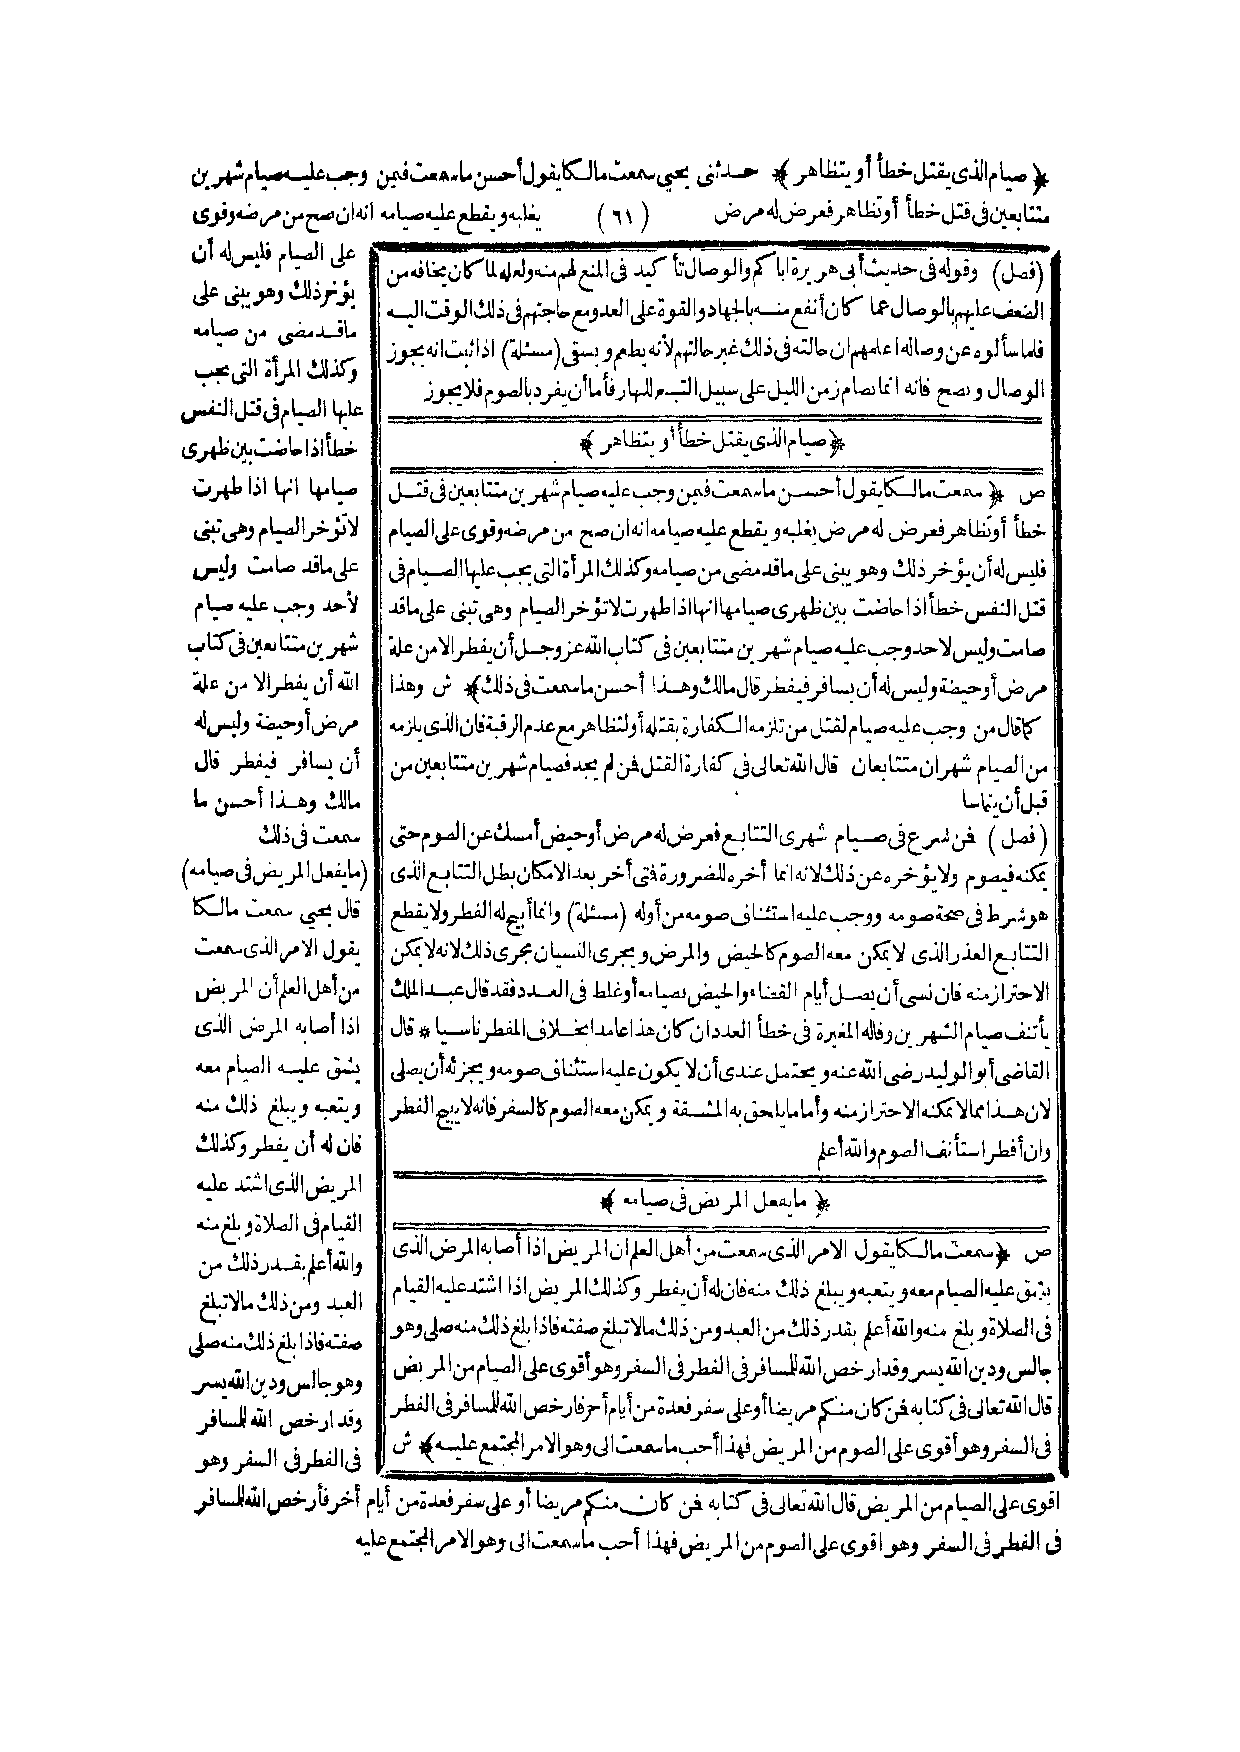 ﴿ صيام الذى يقتل خطأ أو يتظاهر ﴾ حدثنى يحيى سمعت مالكا يقول أحسن ما سمعت فيمن وجب عليه صيام شهرين
متتابعين فى قتل خطأ أو تظاهر فعرض له مرض (٦١) يغلبه ويقطع عليه صيامه انه ان صح من مرضه وقوى
على الصيام فليس له أن
يؤخر ذلك وهو يبنى على
ما قد مضى من صيامه
وكذلك المرأة التى يجب
عليها الصيام فى قتل النفس
خطأ اذا حاضت بين ظهرى
صيامها انها اذا طهرت
لا تؤخر الصيام وهى تبنى
على ما قد صامت وليس
لأحد وجب عليه صيام
شهرين متتابعين فى كتاب
الله أن يفطر الا من علة
مرض أو حيضة وليس له
أن يسافر فيفطر قال
مالك وهذا أحسن ما
سمعت فى ذلك
(ما يفعل المريض فى صيامه)
قال يحيى سمعت مالكا
يقول الامر الذى سمعت
من أهل العلم أن المريض
اذا أصابه المرض الذى
يشق عليه الصيام معه
ويتعبه ويبلغ ذلك منه
فان له أن يفطر وكذلك
المريض الذى اشتد عليه
القيام فى الصلاة وبلغ منه
والله أعلم بقدر ذلك من
العبد ومن ذلك مالا تبلغ
صفته فاذا بلغ ذلك منه صلى
وهو جالس ودين الله يسر
وقد ارخص الله للمسافر
فى الفطر فى السفر وهو
اقوى على الصيام من المريض قال الله تعالى فى كتابه فمن كان منكم مريضا أو على سفر فعدة من أيام أخر فأرخص الله للمسافر
فى الفطر فى السفر وهو اقوى على الصوم من المريض فهذا أحب ما سمعت الى وهو الامر المجتمع عليه
(فصل) وقوله فى حديث أبى هريرة اياكم والوصال تأكيد فى المنع لهم منه ولعله لما كان يخافه من
الضعف عليهم بالوصال عما كان أنفع منه بالجهاد والقوة على العدو مع حاجتهم فى ذلك الوقت اليه
فلما سألوه عن وصاله اعلمهم ان حالته فى ذلك غير حالتهم لأنه يطعم ويسقى (مسئلة) اذا ثبت انه يجوز
الوصال ويصح فانه انما يصام زمن الليل على سبيل التبع للنهار فأما أن يفرد بالصوم فلا يجوز
﴿ صيام الذى يقتل خطأ أو يتظاهر ﴾
ص ﴿ سمعت مالكا يقول أحسن ما سمعت فيمن وجب عليه صيام شهرين متتابعين فى قتل
خطأ أو تظاهر فعرض له مرض يغلبه ويقطع عليه صيامه انه ان صح من مرضه وقوى على الصيام
فليس له أن يؤخر ذلك وهو يبنى على ما قد مضى من صيامه وكذلك المرأة التى يجب عليها الصيام فى
قتل النفس خطأ اذا حاضت بين ظهرى صيامها انها اذا طهرت لا تؤخر الصيام وهى تبنى على ما قد
صامت وليس لاحد وجب عليه صيام شهرين متتابعين فى كتاب الله عز وجل أن يفطر الا من علة
مرض أو حيضة وليس له أن يسافر فيفطر قال مالك وهذا أحسن ما سمعت فى ذلك ﴾ ش وهذا
كما قال من وجب عليه صيام لقتل من تلزمه الكفارة بقتله أو لتظاهر مع عدم الرقبة فان الذى يلزمه
من الصيام شهران متتابعان قال الله تعالى فى كفارة القتل فمن لم يجد فصيام شهرين متتابعين من
قبل أن يتماسا
(فصل) فمن شرع فى صيام شهرى التتابع فعرض له مرض أو حيض أمسك عن الصوم حتى
يمكنه فيصوم ولا يؤخره عن ذلك لانه انما أخره للضرورة فمتى أخر بعد الامكان بطل التتابع الذى
هو شرط فى صحة صومه ووجب عليه استئناف صومه من أوله (مسئلة) وانما أبيح له الفطر ولا يقطع
التتابع العذر الذى لا يمكن معه الصوم كالحيض والمرض ويجرى النسيان مجرى ذلك لانه لا يمكن
الاحتراز منه فان نسى أن يصل أيام القضاء والحيض بصيامه أو غلط فى العدد فقد قال عبد الملك
يأتنف صيام الشهرين وقاله المغيرة فى خطأ العدد ان كان هذا عامدا بخلاف المفطر ناسيا * قال
القاضى أبو الوليد رضى الله عنه ويحتمل عندى أن لا يكون عليه استئناف صومه ويجزئه أن يصلى
لان هذا مما لا يمكنه الاحتراز منه وأما ما يلحق به المشقة ويمكن معه الصوم كالسفر فانه لا يبيح الفطر
وان أفطر استأنف الصوم والله أعلم
﴿ ما يفعل المريض فى صيامه ﴾
ص ﴿ سمعت مالكا يقول الامر الذى سمعت من أهل العلم ان المريض اذا أصابه المرض الذى
يشق عليه الصيام معه ويتعبه ويبلغ ذلك منه فان له أن يفطر وكذلك المريض اذا اشتد عليه القيام
فى الصلاة وبلغ منه والله أعلم بقدر ذلك من العبد ومن ذلك مالا تبلغ صفته فاذا بلغ ذلك منه صلى وهو
جالس ودين الله يسر وقد ارخص الله للمسافر فى الفطر فى السفر وهو أقوى على الصيام من المريض
قال الله تعالى فى كتابه فمن كان منكم مريضا أو على سفر فعدة من أيام أخر فارخص الله للمسافر فى الفطر
فى السفر وهو أقوى على الصوم من المريض فهذا أحب ما سمعت الى وهو الامر المجتمع عليه ﴾ ش